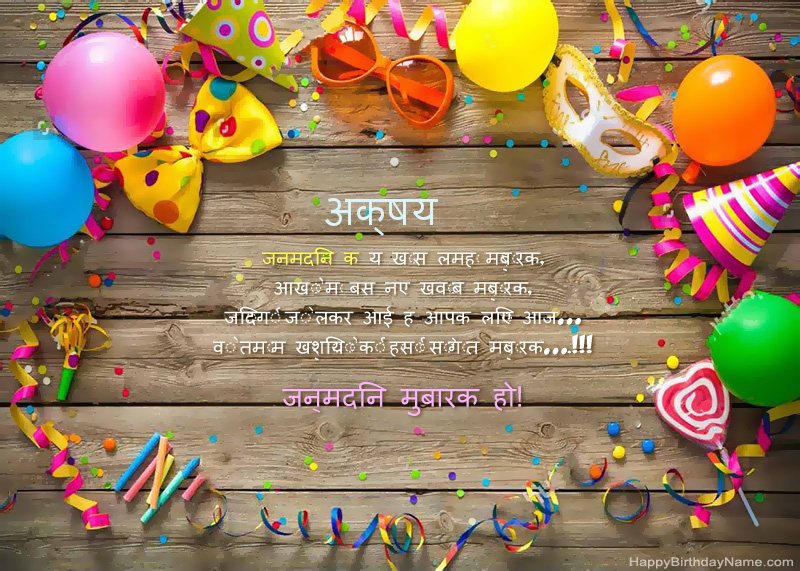 अक्षय
जन्मदिन के ये खास लम्हें मुबारक,
आंखों में बसे नए ख्वाब मुबारक,
जिंदगी जो लेकर आई है आपके लिए आज...
वो तमाम खुशियों की हंसीं सौगात मुबारक...!!!
जन्मदिन मुबारक हो!
HappyBirthdayName.com